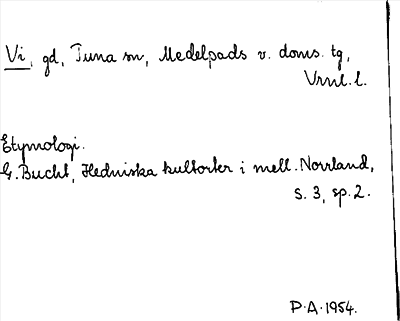 Vi, gd, Tuna sn, Medelpads v. doms. tg,
Vrnl. l.
Etymologi.
G. Bucht, Hedniska kultorter i mell. Norrland,
s. 3, sp. 2.
P.A. 1954.